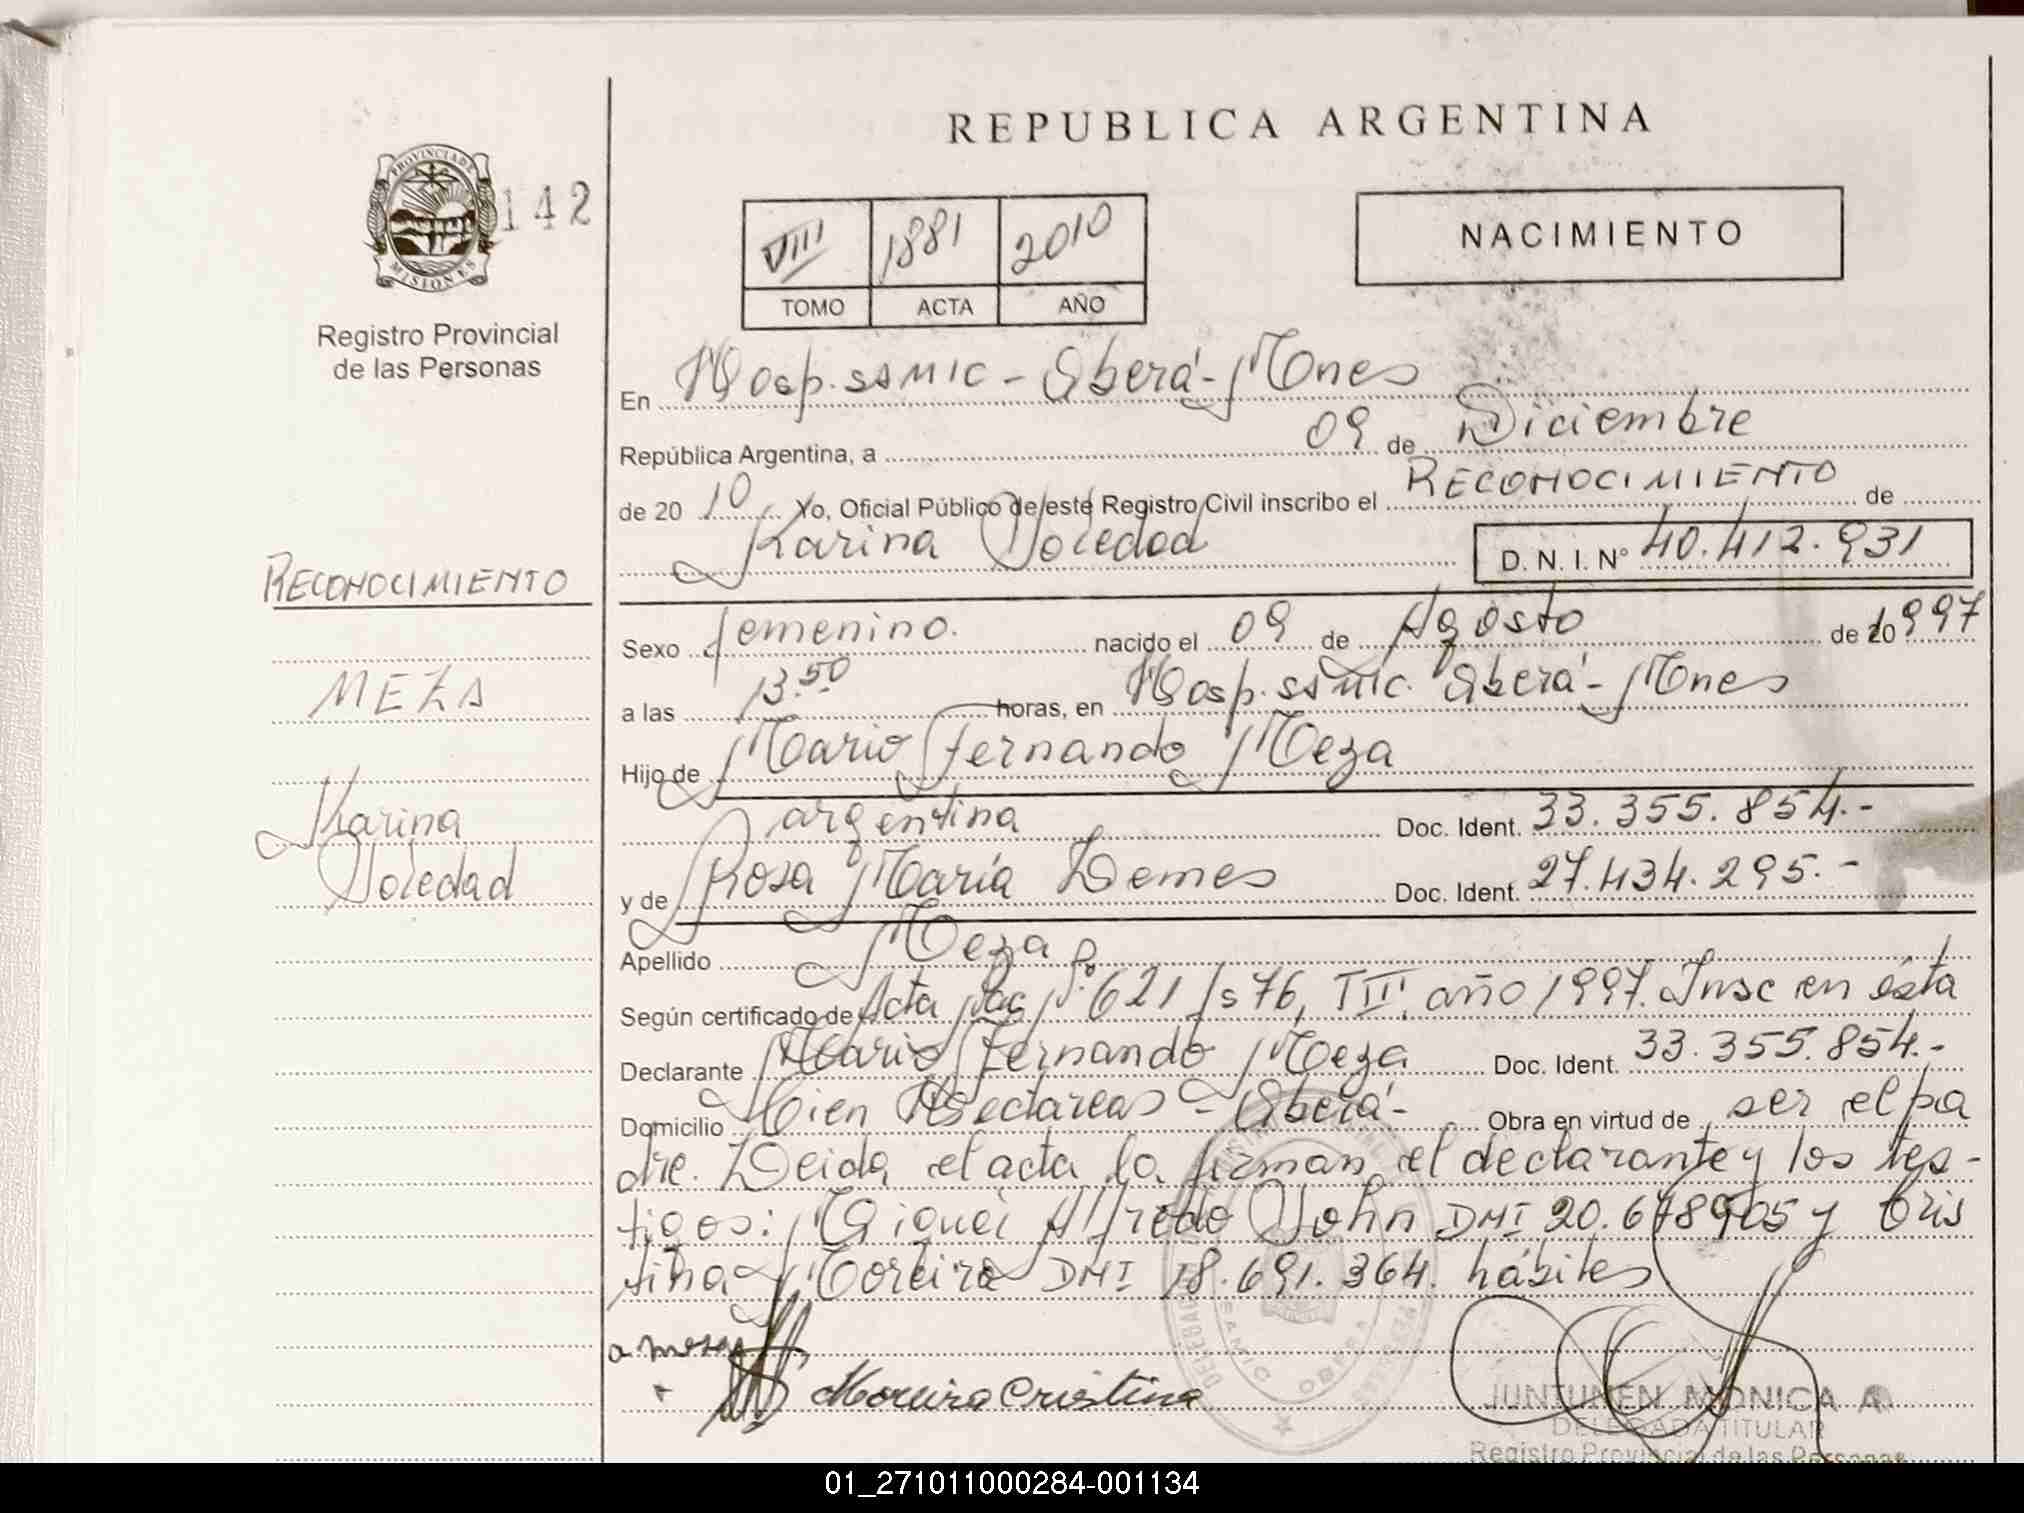 REPUBLICA ARGENTINA
PROVINCIA DE
MISIONES
142
Registro Provincial
de las Personas
VIII 1881 2010
TOMO ACTA AÑO
NACIMIENTO
En Hosp. SAMIC - Oberá - Mnes
República Argentina, a 09 de Diciembre
de 20 10 Yo, Oficial Público de este Registro Civil inscribo el RECONOCIMIENTO de
Karina Soledad D. N. I. N° 40.412.931
Sexo femenino. nacido el 09 de Agosto de 20 1997
a las 13.50 horas, en Hosp. SAMIC. Oberá - Mnes
Hijo de Mario Fernando Meza
argentina Doc. Ident. 33.355.854.-
y de Rosa María Lemes Doc. Ident. 27.434.295.-
Apellido Meza
Según certificado de Acta Nac Nº 621 fs 76, T III, año 1997. Insc en ésta
Declarante Mario Fernando Meza Doc. Ident. 33.355.854.-
Domicilio Cien Hectareas - Oberá - Obra en virtud de ser el pa
dre. Leida el acta la firman el declarante y los tes-
tigos: Miguel Alfredo John DNI 20.678905 y Cris
tina Moreira DNI 18.691.364. hábiles
RECONOCIMIENTO
MEZA
Karina
Soledad
Moreira Cristina
JUNTUNEN MONICA A
DELEGADA TITULAR
Registro Provincial de las Personas
01_271011000284-001134